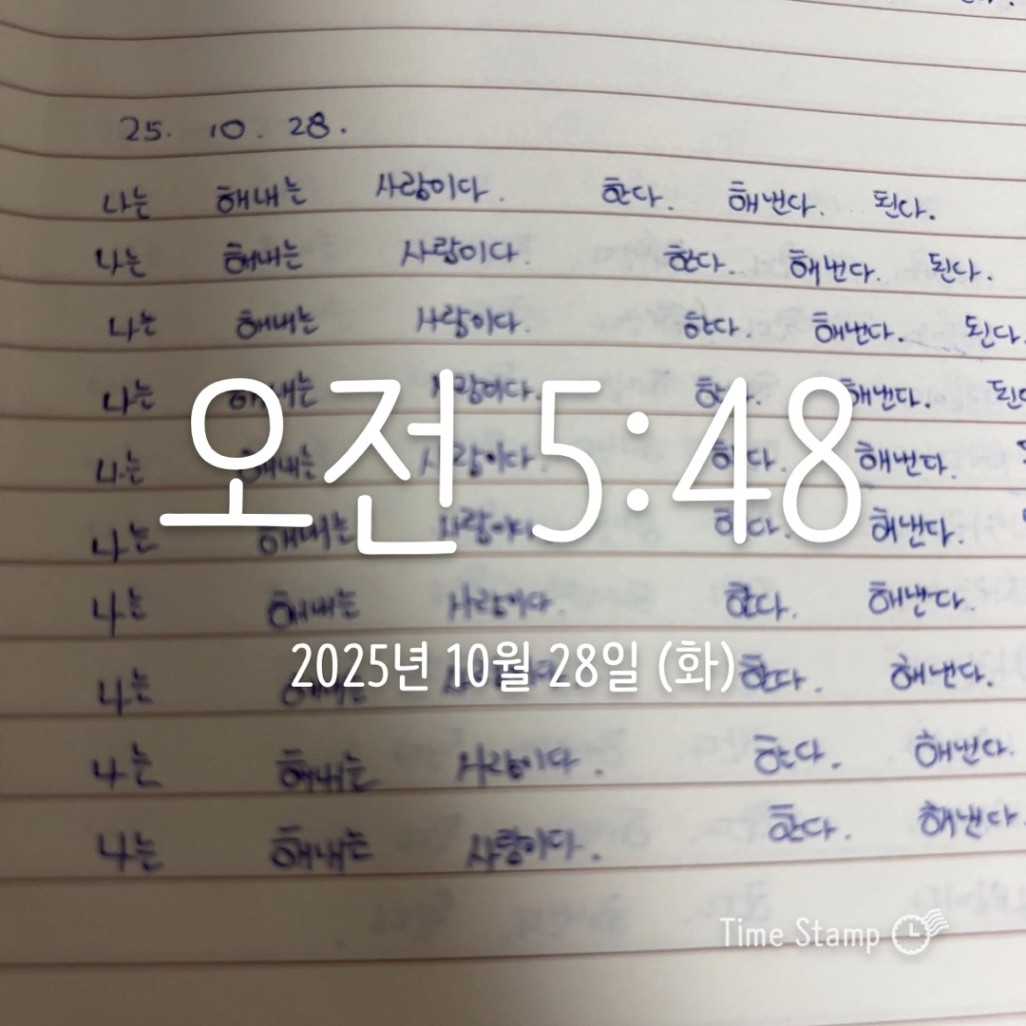 25. 10. 28.
나는 해내는 사람이다. 한다. 해낸다. 된다.
나는 해내는 사람이다. 한다. 해낸다. 된다.
나는 해내는 사람이다. 한다. 해낸다. 된다.
나는 해내는 사람이다. 한다. 해낸다.
오전 5:48
나는 해내는 사람이다. 한다. 해낸다.
나는 해내는 한다. 해낸다.
나는 해내는 사람이다. 한다. 해낸다.
2025년 10월 28일 (화)
나는 한다. 해낸다.
나는 해내는 사람이다. 한다. 해낸다.
나는 해내는 사람이다. 한다. 해낸다.
Time Stamp